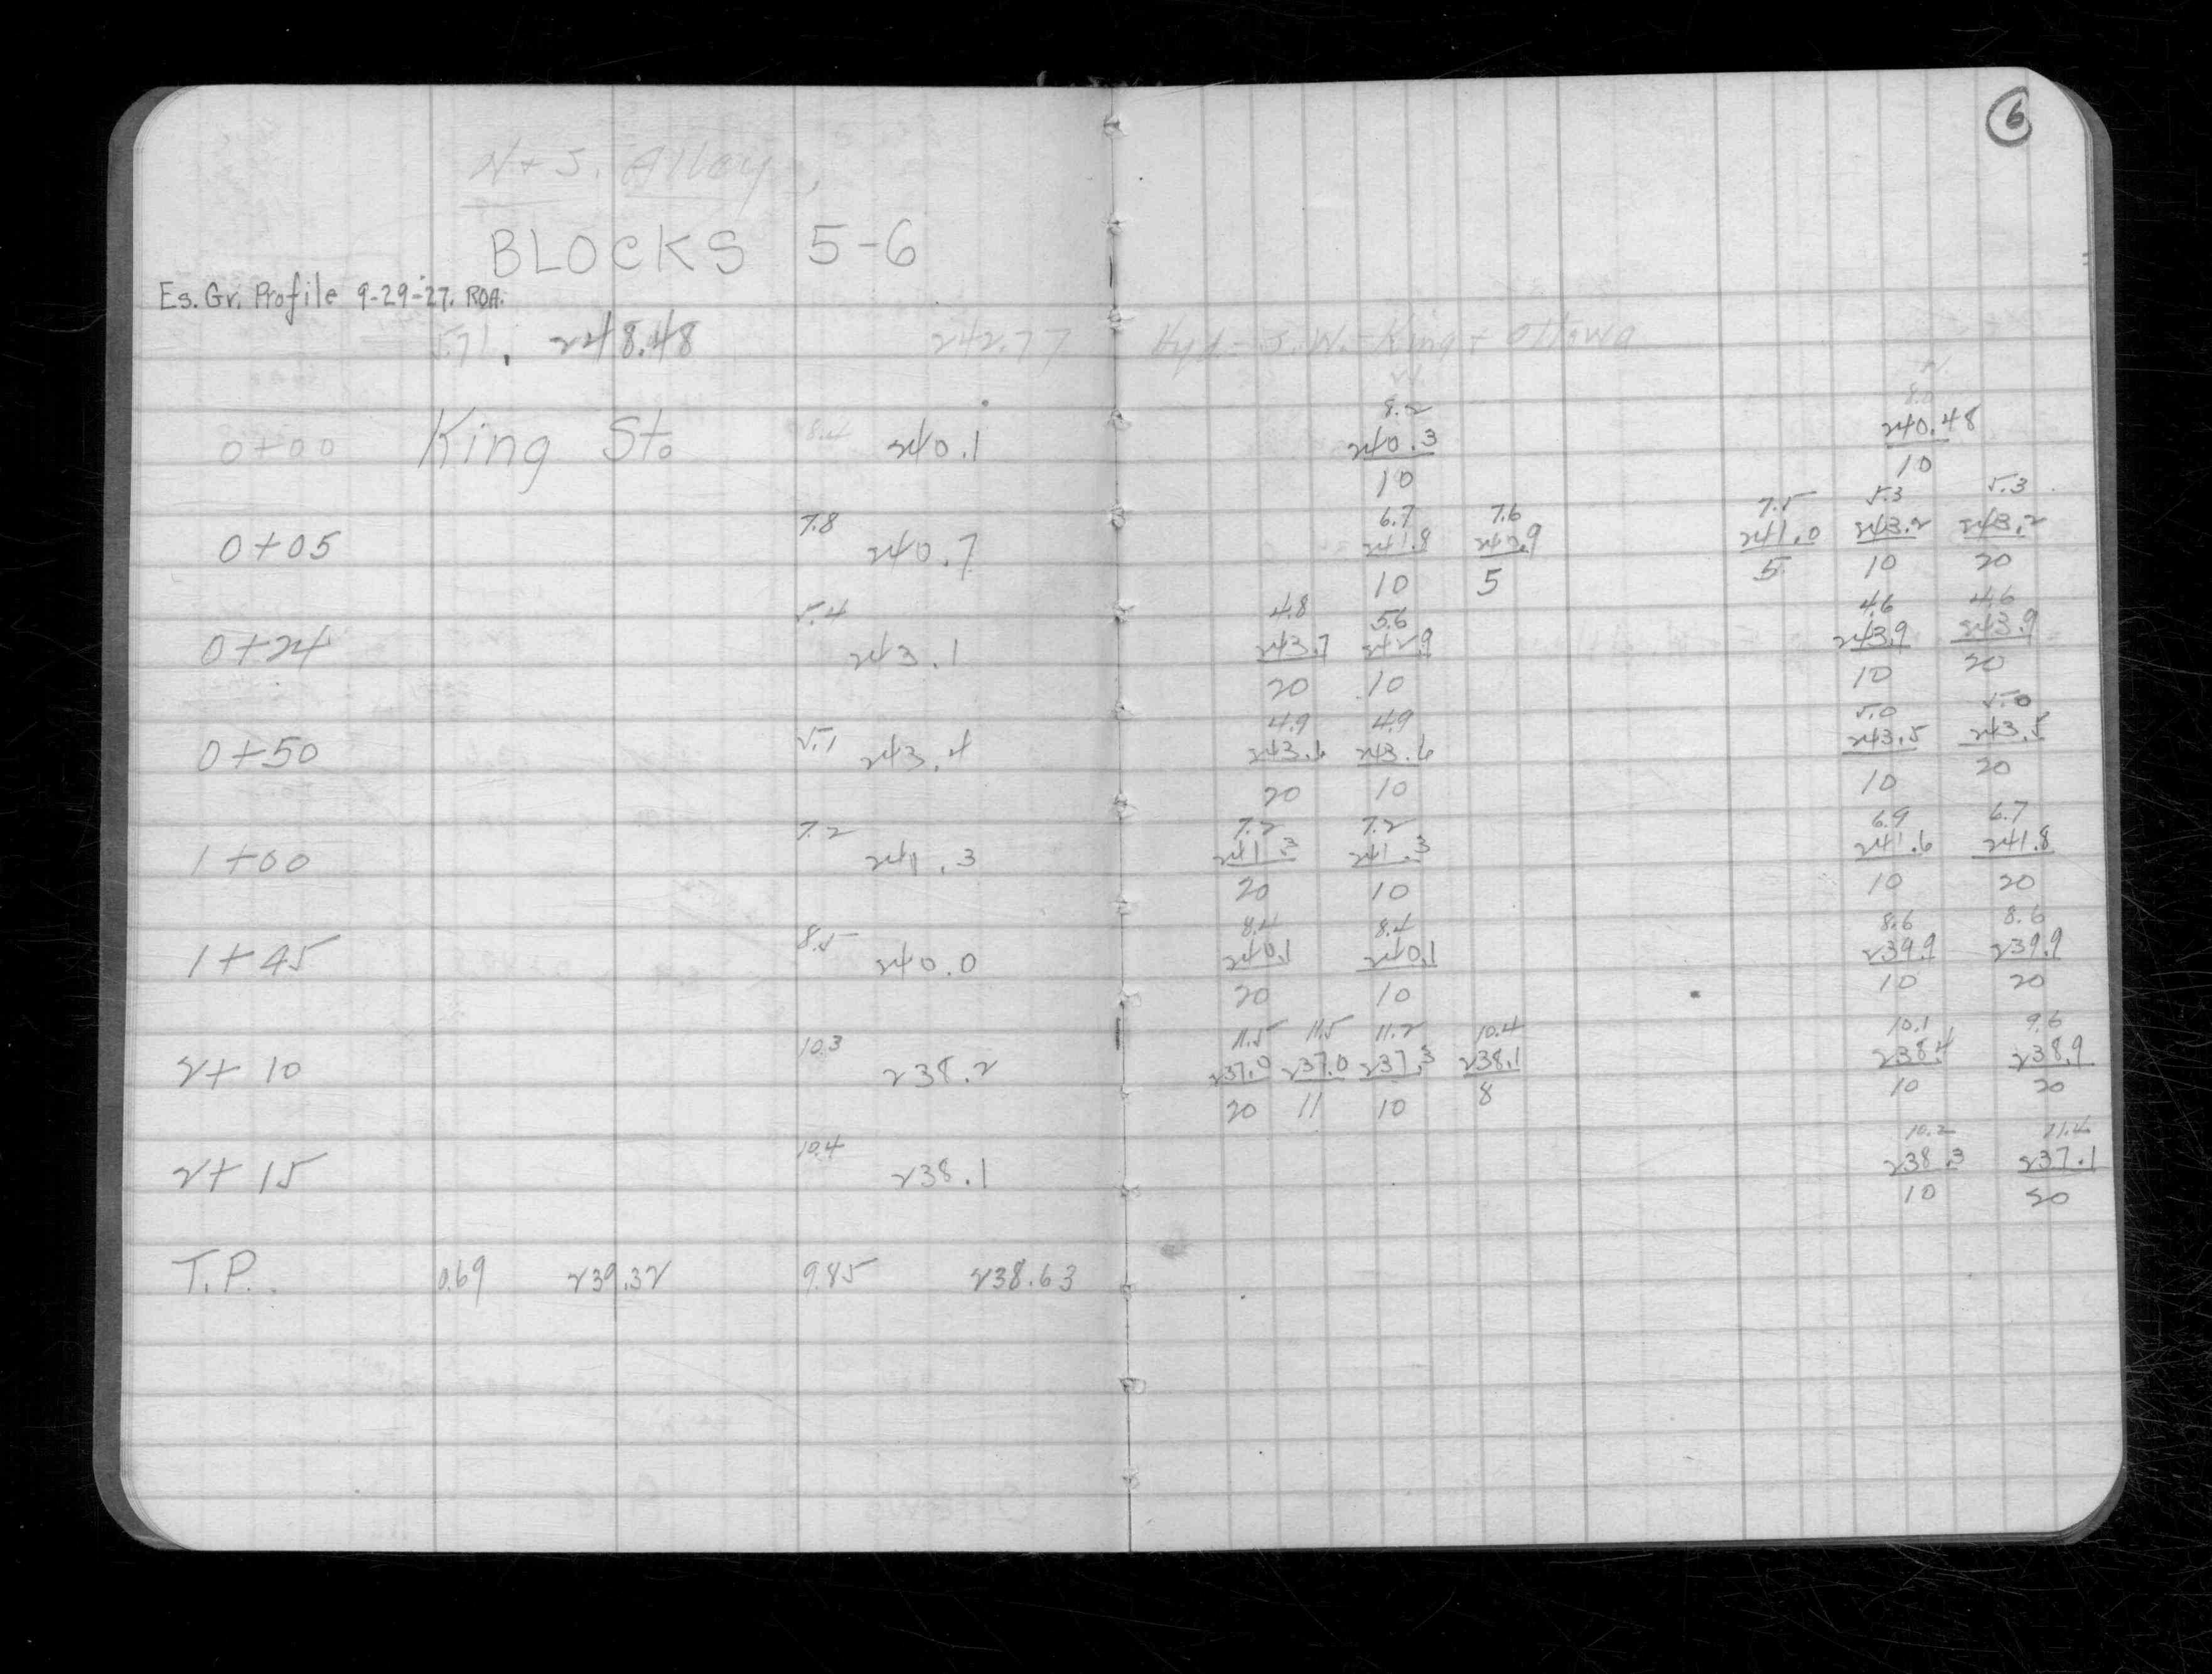 6
N + S. Alley,
BLOCKS 5-6
Es. Gr. Profile 9-29-27. ROA.
5.71 248.48 242.77 Hyd - S.W. - King + Ottawa
8.2 8.0
0+00 King St. 8.4 240.1 240.3 240.48
10 10
7.8 6.7 7.6 7.5 5.3 5.3
0+05 240.7 241.8 240.9 241.0 243.2 243.2
10 5 5 10 20
5.4 4.8 5.6 4.6 4.6
0+24 243.1 243.7 242.9 243.9 243.9
20 10 10 20
5.1 4.9 4.9 5.0 5.0
0+50 243.4 243.6 243.6 243.5 243.5
20 10 10 20
7.2 7.2 7.2 6.9 6.7
1+00 241.3 241.3 241.3 241.6 241.8
20 10 10 20
8.5 8.4 8.4 8.6 8.6
1+45 240.0 240.1 240.1 239.9 239.9
20 10 10 20
10.3 11.5 11.5 11.2 10.4 10.1 9.6
2+10 238.2 237.0 237.0 237.3 238.1 238.4 238.9
20 11 10 8 10 20
10.4 10.2 11.4
2+15 238.1 238.3 237.1
10 20
T.P. 0.69 239.32 9.85 238.63